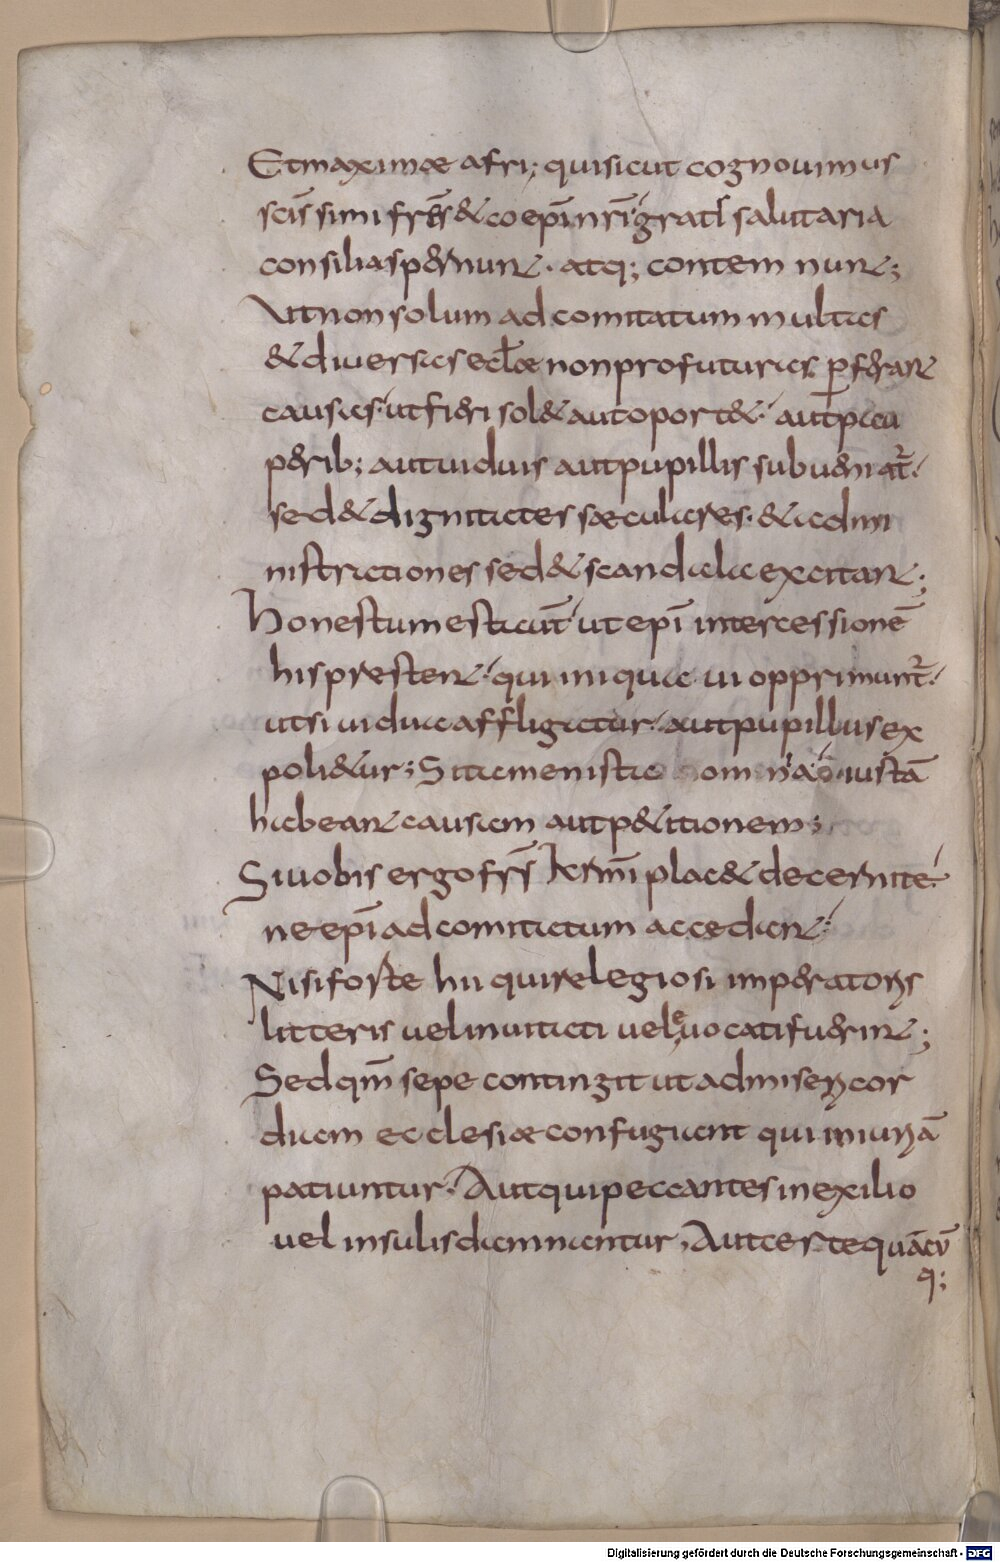 Et maximæ afri; qui sicut cognouimus
scissimi frēs & coepī nrī grati salutaria
consilia spernunt. atq; contemnunt;
Ut non solum ad comitatum multas
& diuersas ecłæ non profuturas perferant
causas. ut fieri sol& aut oport&. aut pau
perib; aut uiduis aut pupillis subueniat̄.
sed & dignitates sæculares. & admi
nistrationes sed & scandala excitant;
Honestum est aūt ut epī intercessionē
his prestent. qui iniqua ui opprimunt̄.
ut si uidua affligatur. aut pupillus ex
poli&ur; Si tamen ista nomina iustā
habeant causam aut p&itionem;
Si uobis ergo frs̄ kr̄mi plac& decernite.
ne epī ad comitatum accedant.
Nisi forte hii qui relegiosi imperatoris
litteris uel inuitati uel euocati fuerint;
Sed qm̄ sepe contingit ut ad misericor
diam ecclesiæ confugiant qui iniuriā
patiuntur. Aut qui peccantes in exilio
uel insulis damnantur, Aut certe quācū
q;
Digitalisierung gefördert durch die Deutsche Forschungsgemeinschaft - DFG